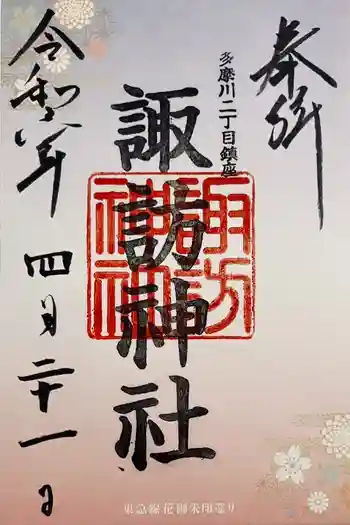 奉拝
多摩川二丁目鎮座
諏訪神社
諏訪神社
令和六年
四月二十一日
東急線花御朱印巡り